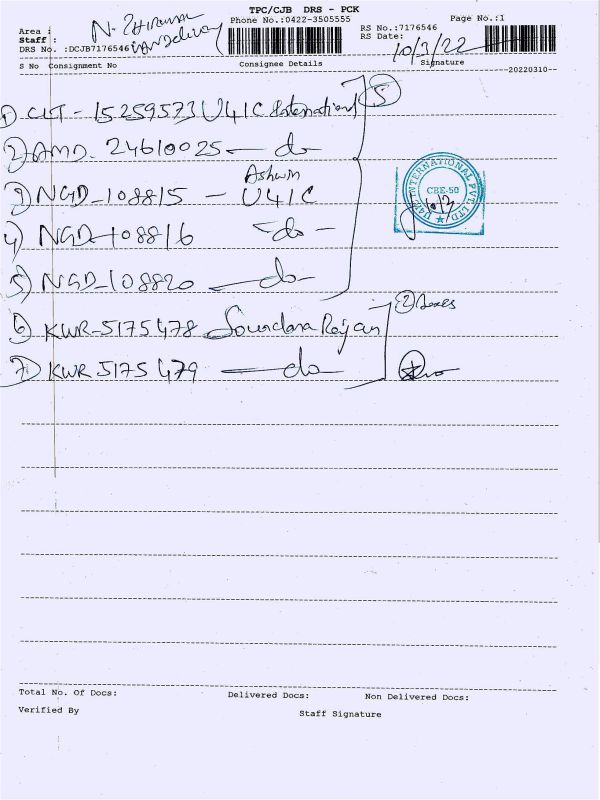 TPC/CJB DRS - PCK
Phone No.:0422-3505555
Page No.:1
Area :
Staff :
DRS No. :DCJB7176546
RS No.:7176546
RS Date:
10/3/22
S No Consignment No Consignee Details Signature
20220310
1) CLT - 15259573 U4IC International 5
2) AMD. 24610025 — do
Ashwin
3) NGD-108815 - U4IC
4) NGD-108816 - do -
5) NGD-108820 — do
U4IC INTERNATIONAL PVT. LTD.
CBE-50
10/3
6) KWR-5175478 Soundara Rajan 2 Boxes
7) KWR 5175479 — do
Total No. Of Docs: Delivered Docs: Non Delivered Docs:
Verified By Staff Signature